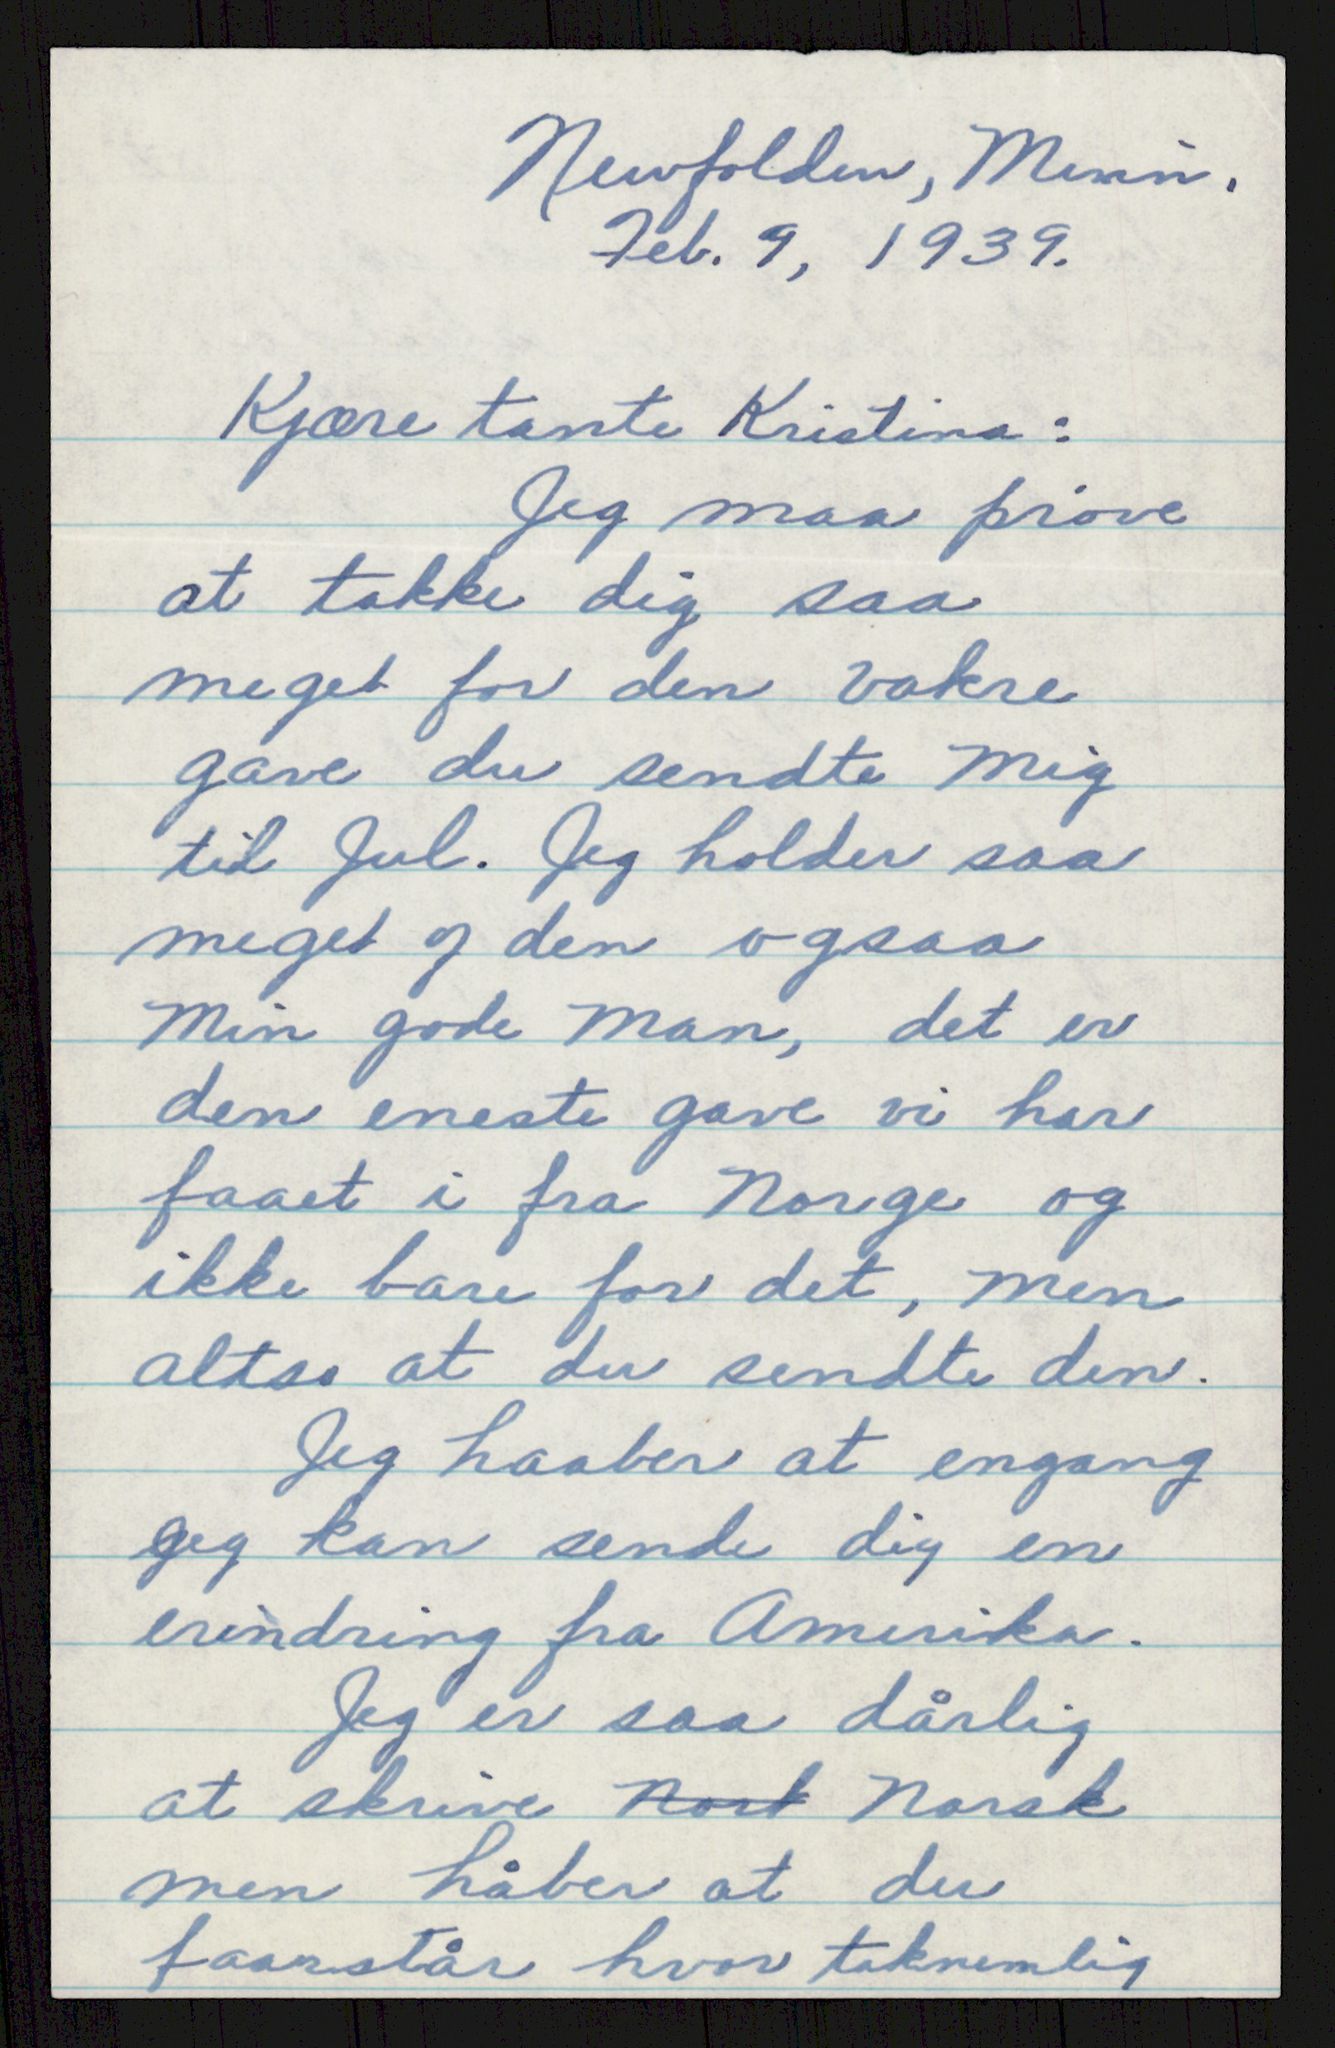 Newfolden, Minn.
Feb. 9, 1939.
Kjære tante Kristina:
Jeg maa prøve
at takke dig saa
meget for den vakre
gave du sendte mig
til Jul. Jeg holder saa
meget of den ogsaa
min gode man, det er
den eneste gave vi har
faaet i fra Norge og
ikke bare for det, men
altso at du sendte den.
Jeg haaber at engang
jeg kan sende dig en
erindring fra Amerika.
Jeg er saa dårlig
at skrive Nork Norsk
men håber at du
faarstår hvor taknemlig